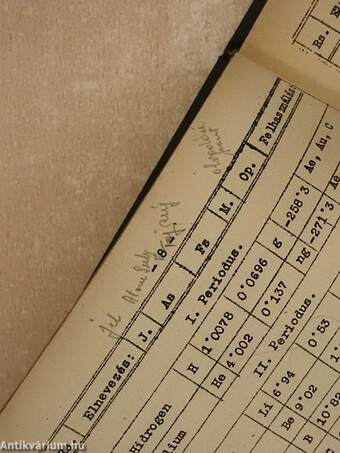 - 8 -
Jel Atomsúly Fajsúly olvadási pont
Elnevezés: J. As Fs M. Op. Felhasználás:
I. Periodus.
Hidrogen H 1˙0078 0˙0696 g -258˙3 Ae, Au, C
lium He 4˙002 0˙137 ng -271˙3 Ae
II. Periodus.
Li 6˙94 0˙53
Be 9˙02
B 10˙82
Rs.
Antikvárium.hu